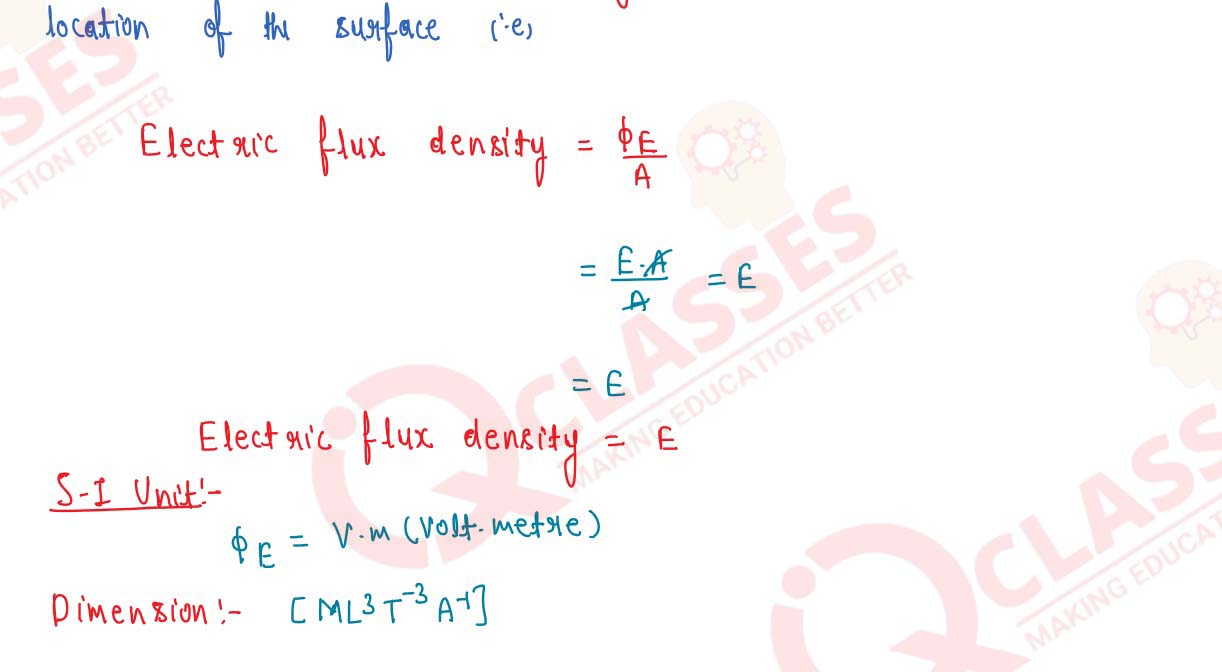 location of the surface (i.e,
Electric flux density = ϕE/A
= E·A/A = E
= E
Electric flux density = E
S-I Unit:-
ϕE = V·m (Volt-metre)
Dimension:- [ML³T⁻³A⁻¹]
SES
ATION BETTER
CLASSES
MAKING EDUCATION BETTER
CLASSES
MAKING EDUCAT